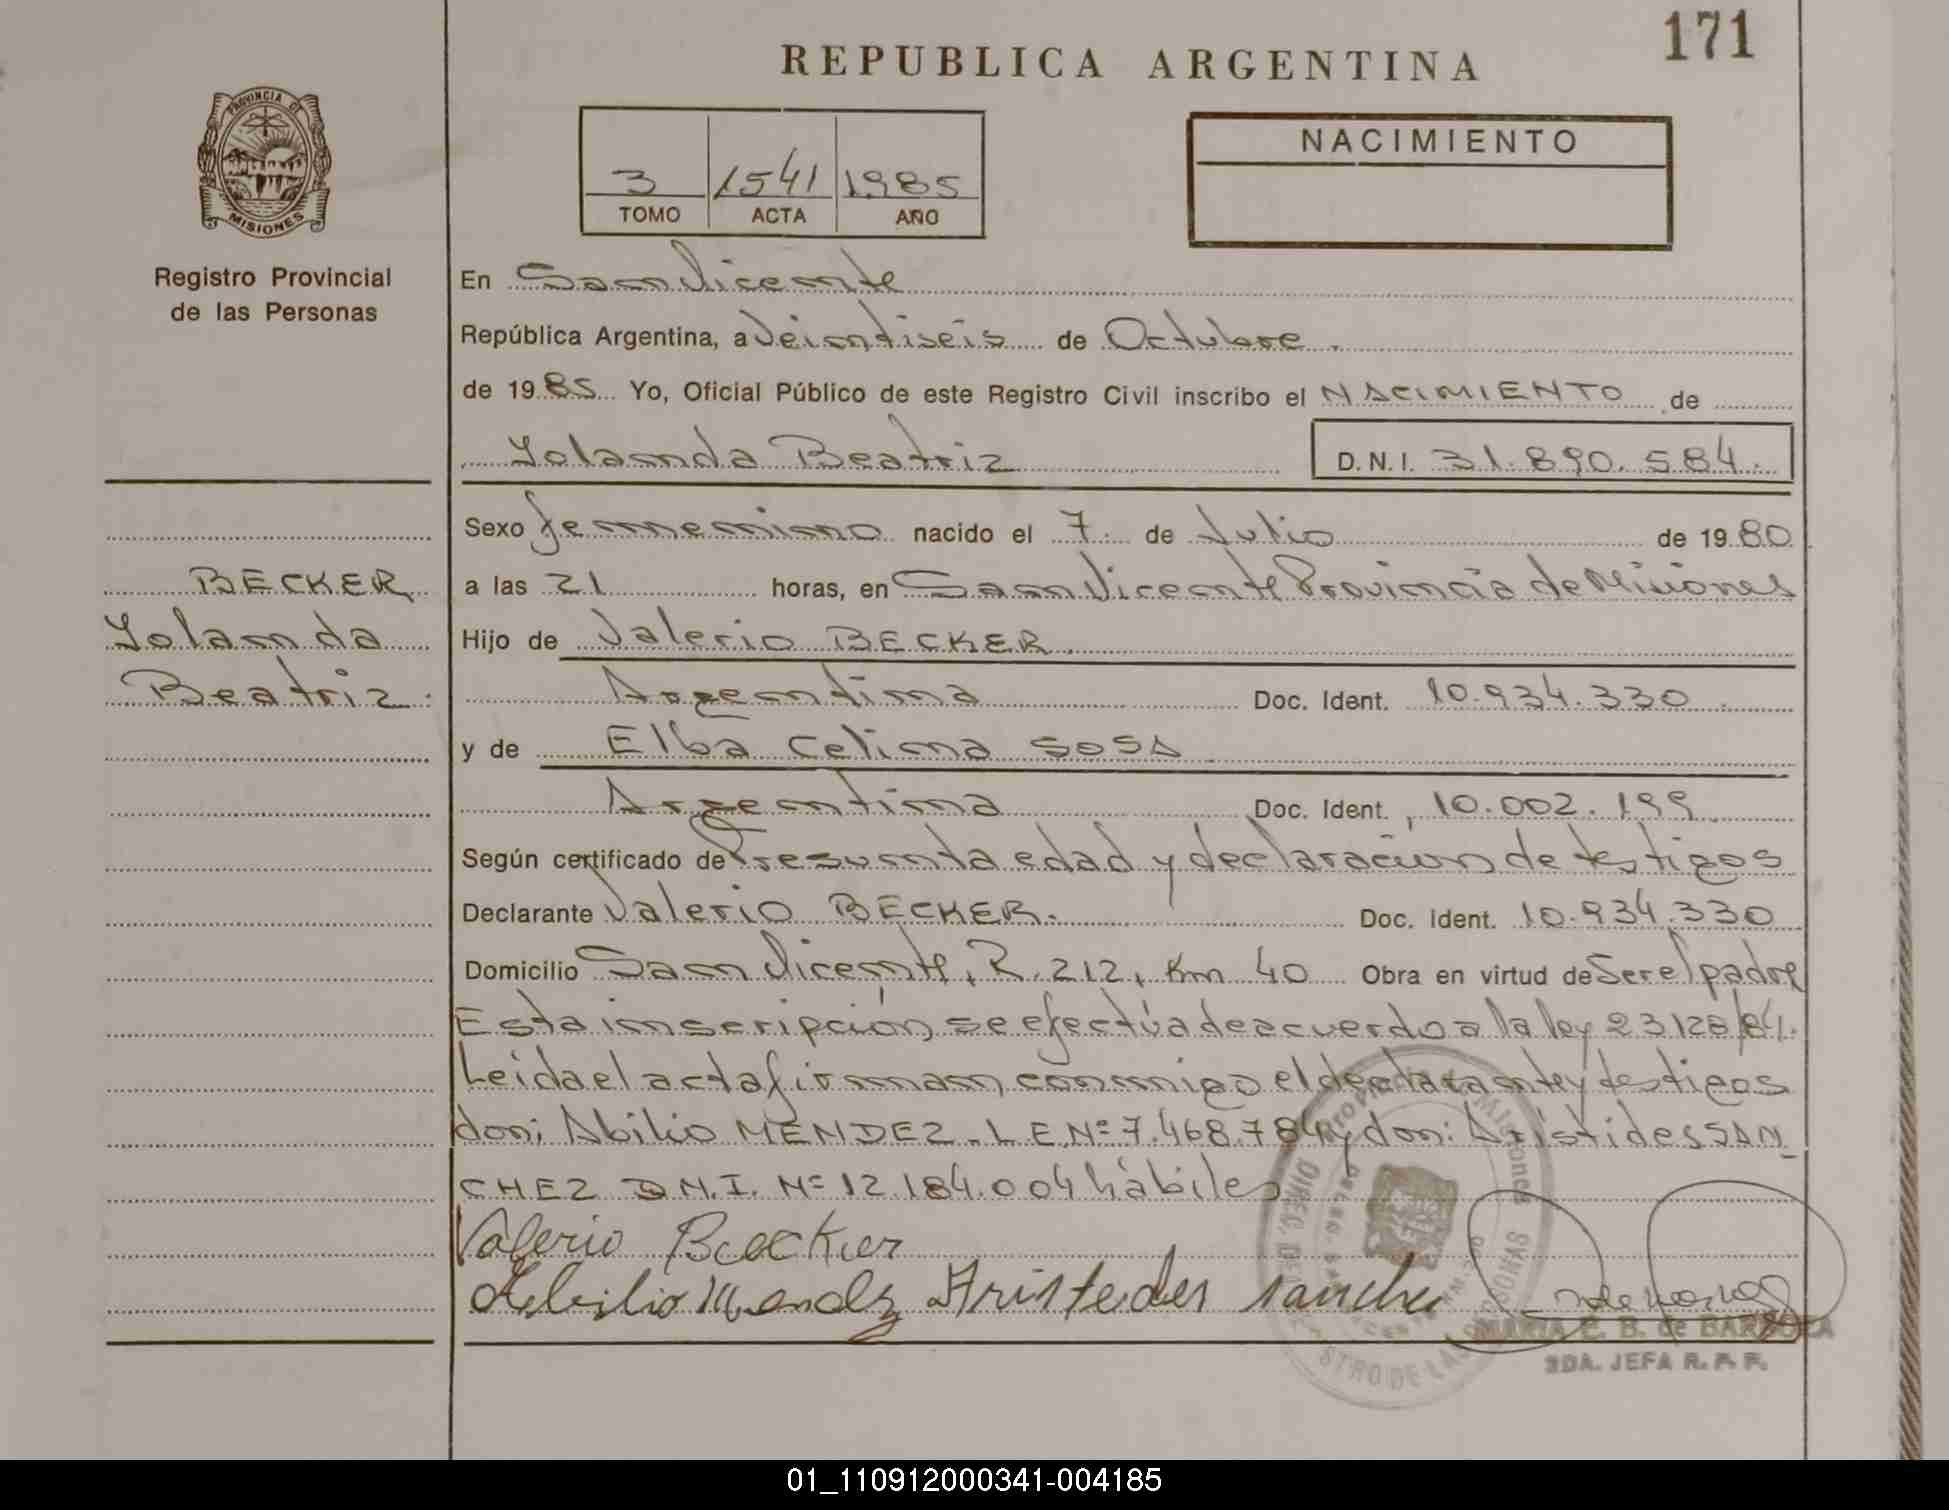 171
REPUBLICA ARGENTINA
PROVINCIA DE
MISIONES
Registro Provincial
de las Personas
3 1541 1985
TOMO ACTA AÑO
NACIMIENTO
En San Vicente
República Argentina, a Veintiseis de Octubre.
de 1985 Yo, Oficial Público de este Registro Civil inscribo el NACIMIENTO de
Yolanda Beatriz D.N.I. 31.890.584.
Sexo femenino nacido el 7. de Julio de 1980
a las 21 horas, en San Vicente Provincia de Misiones
BECKER
Yolanda
Beatriz.
Hijo de Valerio BECKER.
Argentina Doc. Ident. 10.934.330.
y de Elba Celina SOSA.
Argentina Doc. Ident. 10.002.199
Según certificado de Presunta edad y declaración de testigos
Declarante Valerio BECKER. Doc. Ident. 10.934.330
Domicilio San Vicente, R. 212, Km 40 Obra en virtud de Ser el padre
Esta inscripción se efectúa de acuerdo a la ley 23128/84.
Leida el acta firman conmigo el declarante y testigos
don: Abilio MENDEZ. L.E.Nº 7.468.784 y don: Aristides SAN
CHEZ D.N.I. Nº 12.184.004 hábiles
Valerio Becker
Abilio Mendez Aristedes Sanche
MARIA E. B. de BARBOZA
2DA. JEFA R. P. P.
01_110912000341-004185